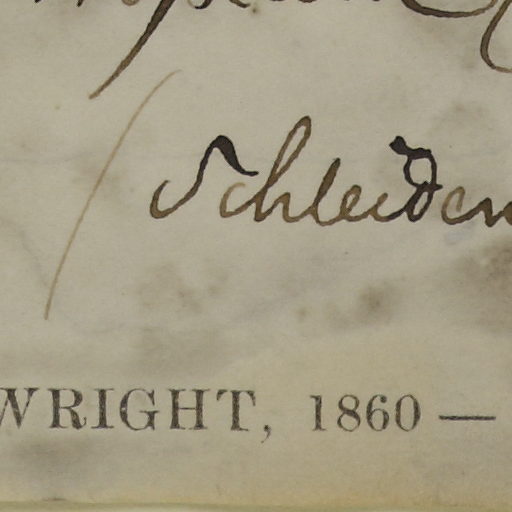 Schleiden
WRIGHT, 1860 —